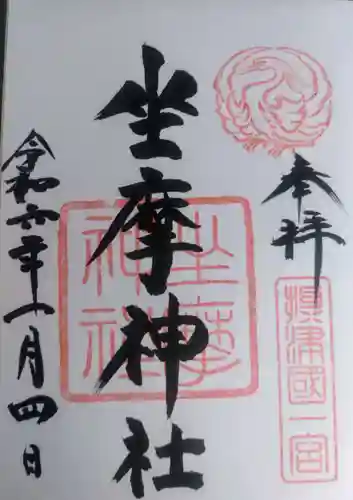 奉拝
摂津國一宮
坐摩神社
坐摩神社
令和六年一月四日